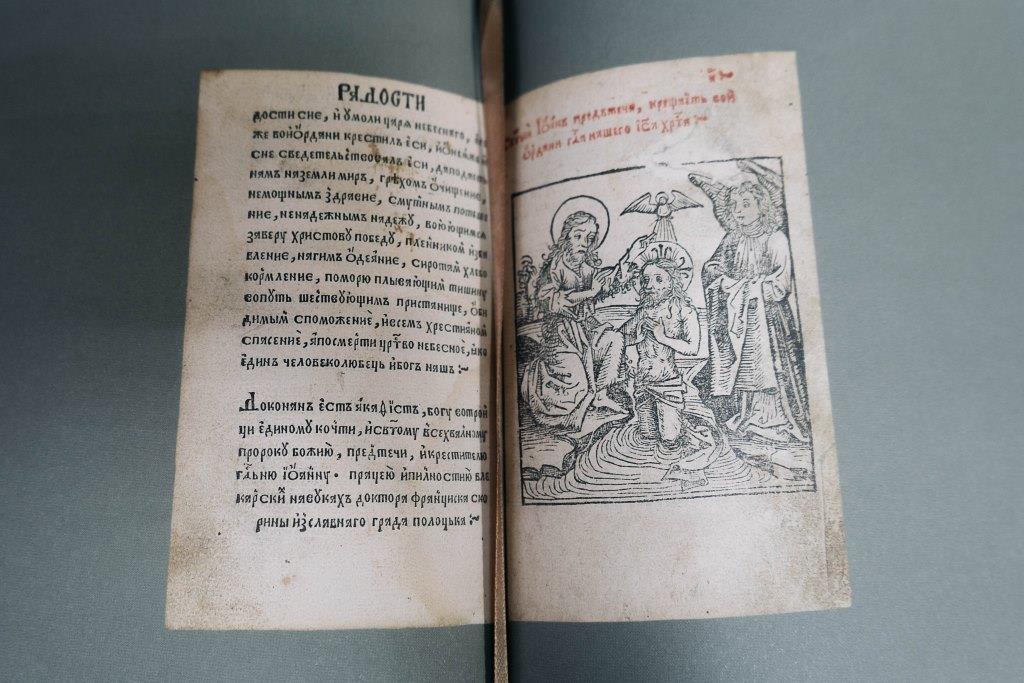 РАДОСТИ
дости сие, и умоли царя небеснаго,
же воиѻрдани крестилъ еси, и
сие сведетельствовалъ еси, дапода
намъ наземли миръ, грехомъ ѻчищение,
немощнымъ здравие, смутнымъ
ние, ненадежнымъ надежу, воюющимъ
заверу христову победу, пленникомъ
вление, нагимъ ѻдеяние, сиротамъ хлебо
кормление, поморю плывающимъ тишину
вопуть шествующимъ пристанище,
димымъ споможение, ивсемъ христианом
спасение, апосмерти цртво небесное,
единъ человеколюбець ибогъ нашъ :~
Доконанъ естъ акафістъ, богу вотрой
ци единому кочти, исвтому всехвалному
пророку божию, предтечи, икрестителю
гдьню іѻанну. працею ипилностию вле
карскихъ наукахъ доктора франциска ско
рины изславнаго града полоцька :~
Светый Іѻанъ предътеча, крещаеть вой
ѻрдани гда нашего іса хрта :~